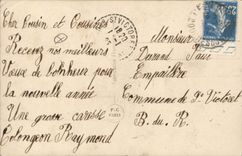 Cher Cousin et Cousine
Recevez nos meilleurs
Vœux de bonheur pour
la nouvelle année
Une grosse caresse
Colongeon Raymond
ST VICTORET
18 20
Monsieur
Durand Paul
Empailleur
Commune de St Victoret
B. du R.
25